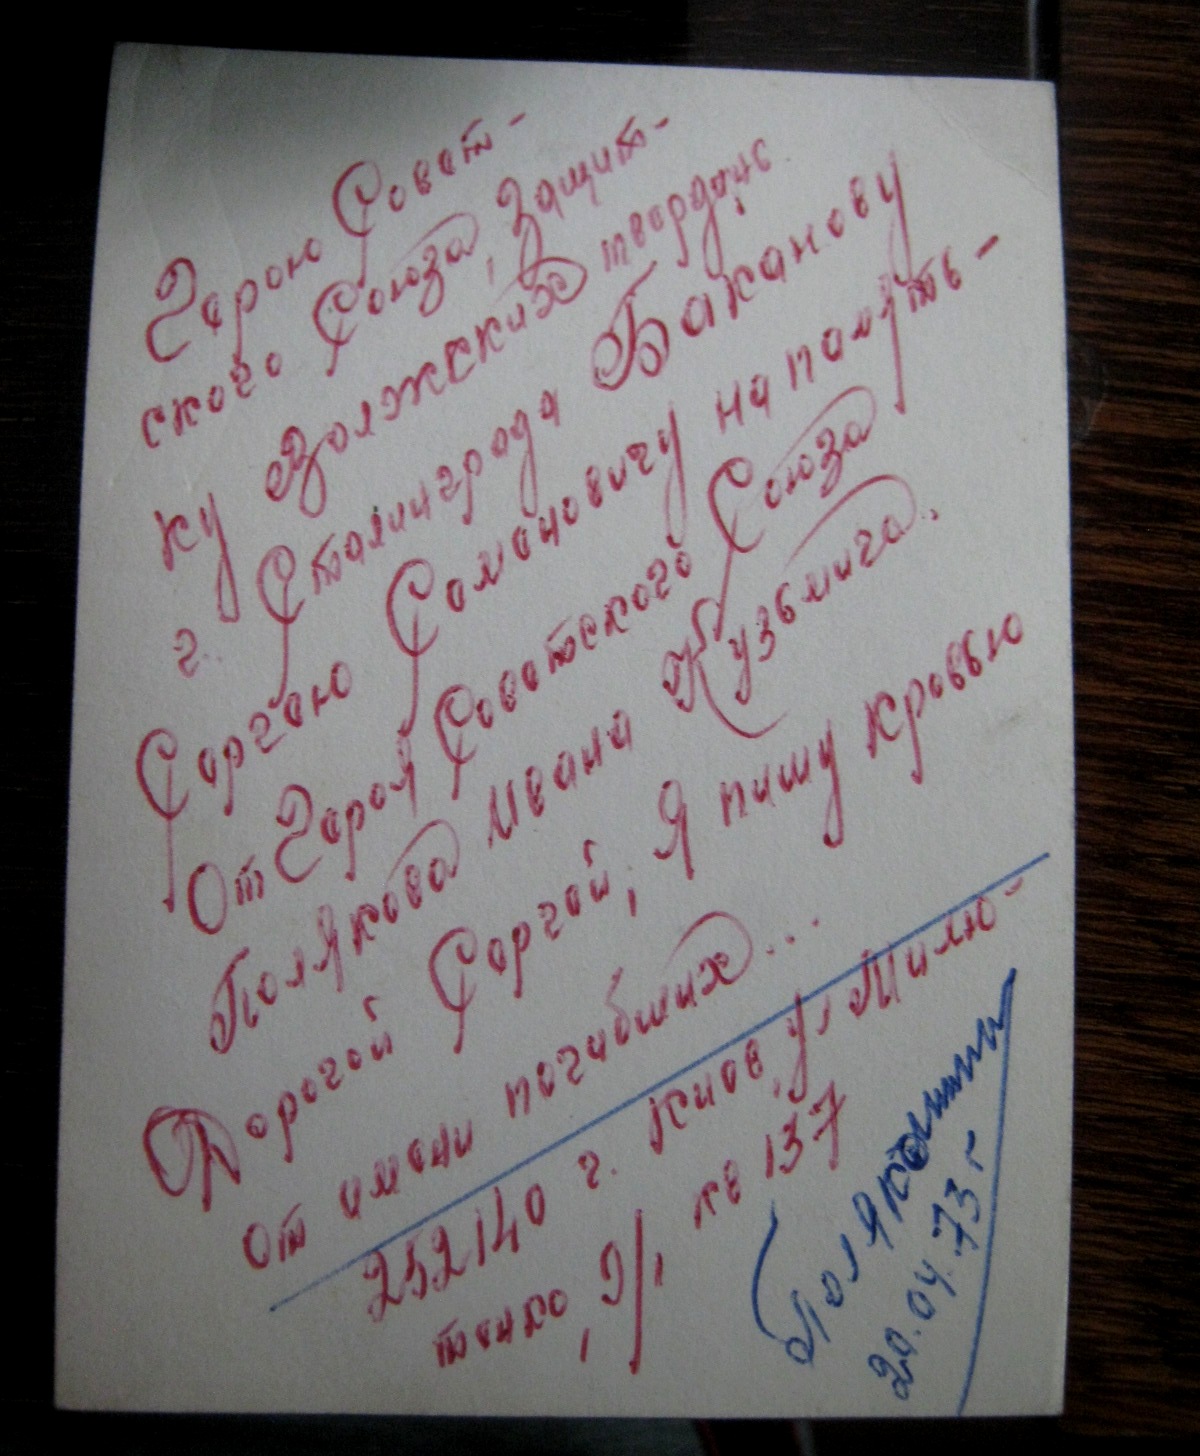 Герою Совет-
ского Союза, Защит-
ку Волжских твердынь
г. Сталинграда Баканову
Сергею Семеновичу на память -
От Героя Советского Союза
Полякова Ивана Кузьмича..
Дорогой Сергей, Я пишу кровью
от имени погибших...
252140 г. Киев, ул Милю-
тенко, 9/, кв 137
Поляков
20.04.73 г